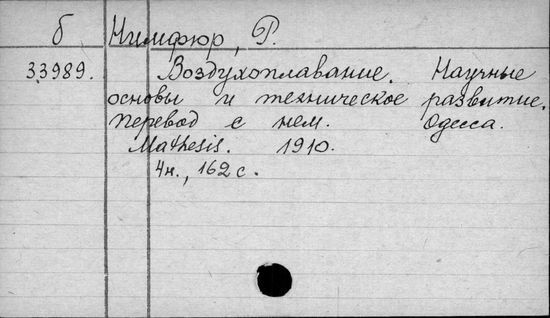 б Нимфюр, Р.
33989. Воздухоплавание. Научные
основы и техническое развитие.
Перевод с нем. Одесса.
Mathesis. 1910.
4н., 162 с.